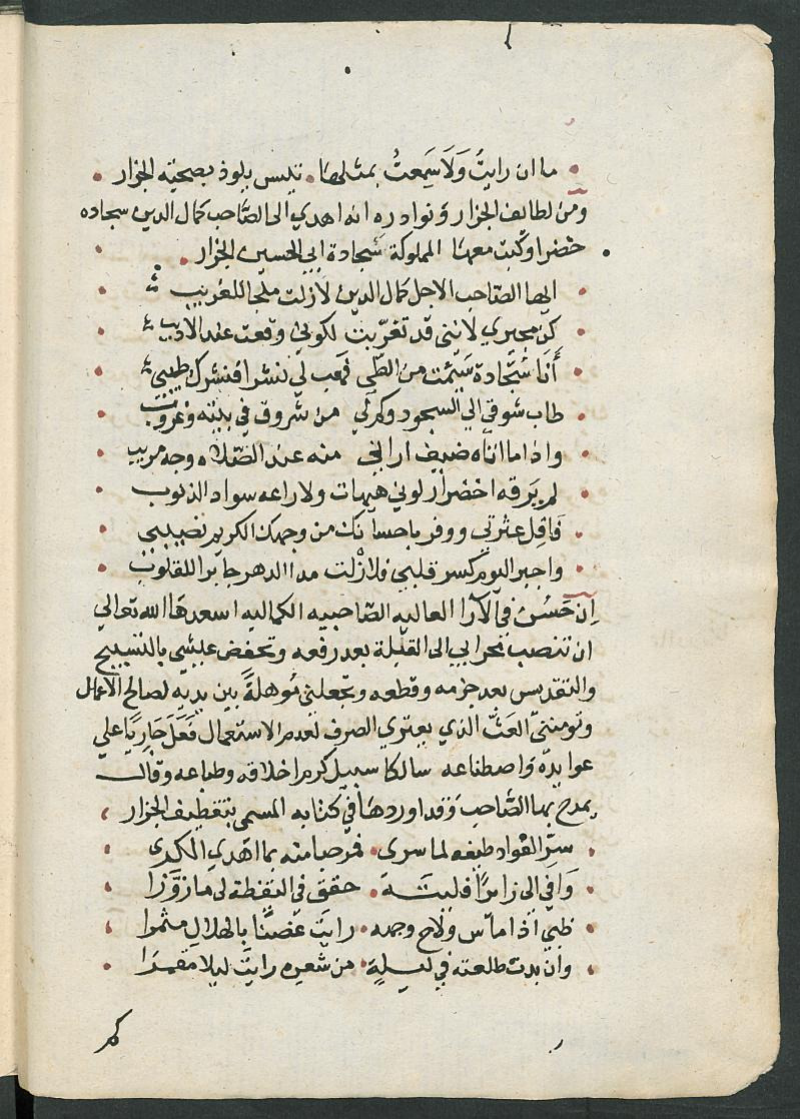 ما ان رايتُ وَلَا سَمِعتُ بمثلها تليس يلوذ بصحبته الجزار
ومن لطايف الجزار ونوادره انه اهدي الى الصَّاحب كمال الدين سجاده
خضرا وكتب معها المملوكة سجادة ابي الحسين الجزار
ايها الصَّاحب الاجل كمال الدين لازلت ملجا للغريب
كن مجيري لانني قد تغرّبت لكوني وقعت عند الاديب
أنا سَجّادة سَئمت من الطَّي فهب لي نشرا فنشرك طيبي
طاب شوقي الي السجود وكم لي من شروق في بيته وغروب
واذا ما اتاه ضيف اراني منه عند الصَّلاه وجه مريب
لم يَرقه اخضرار لوني هيهات ولا راعه سواد الذنوب
فَاقِل عثرتي ووفر باحسانك من وجهك الكريم نصيبي
واجبر اليوم كسر قلبي فلازْلت مدا الدهر جابرا للقلوب
ان حَسُن في الآرا العاليه الصَّاحبيه الكماليه اسعدها الله تعالي
ان تنصب محرابي الى القبلة بعد رفعه وتخفض عيشي بالتسبيح
والتقديس بعد جزمه وقطعه وتجعلني مُوهلةً بين يديه لصالح الاعمال
وتومننيّ العَثّ الذي يعتري الصرف لعدم الاستعمال فَعَلَ جَاريًا علي
عوايده وَاصطناعه سالكا سبيل كرم اخلاقه وطباعه وقال
يمدح بها الصَّاحب وَقد اوردهَا في كتابه المسمى بتقطيف الجزار
سرّ الفواد طيفه لما سرى فمرحبا منه بما اهدي الكرى
وَافي الي زايرًا فليتَه حقق في اليقظة لي ما زوَّرا
ظبي اذا ماس ولاح وجهه رايت غصنًا بالهلال مثمرا
وان بدت طلعته في ليلةٍ من شعره رايت ليلا مقمرَا